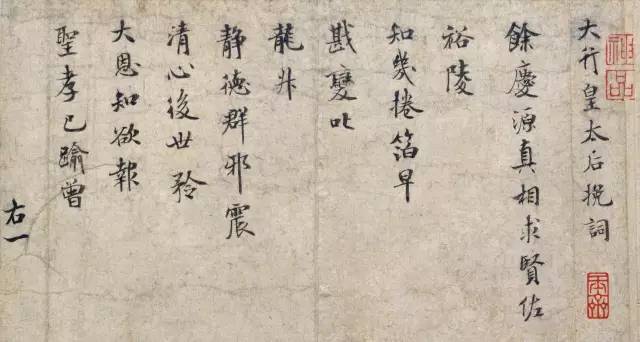 大行皇太后挽詞
餘慶源真相求賢佐
裕陵
知幾捲箔早
戡變叱
龍升
静德群邪震
清心後世矜
大恩知欲報
聖孝已踰曾
右一
神品